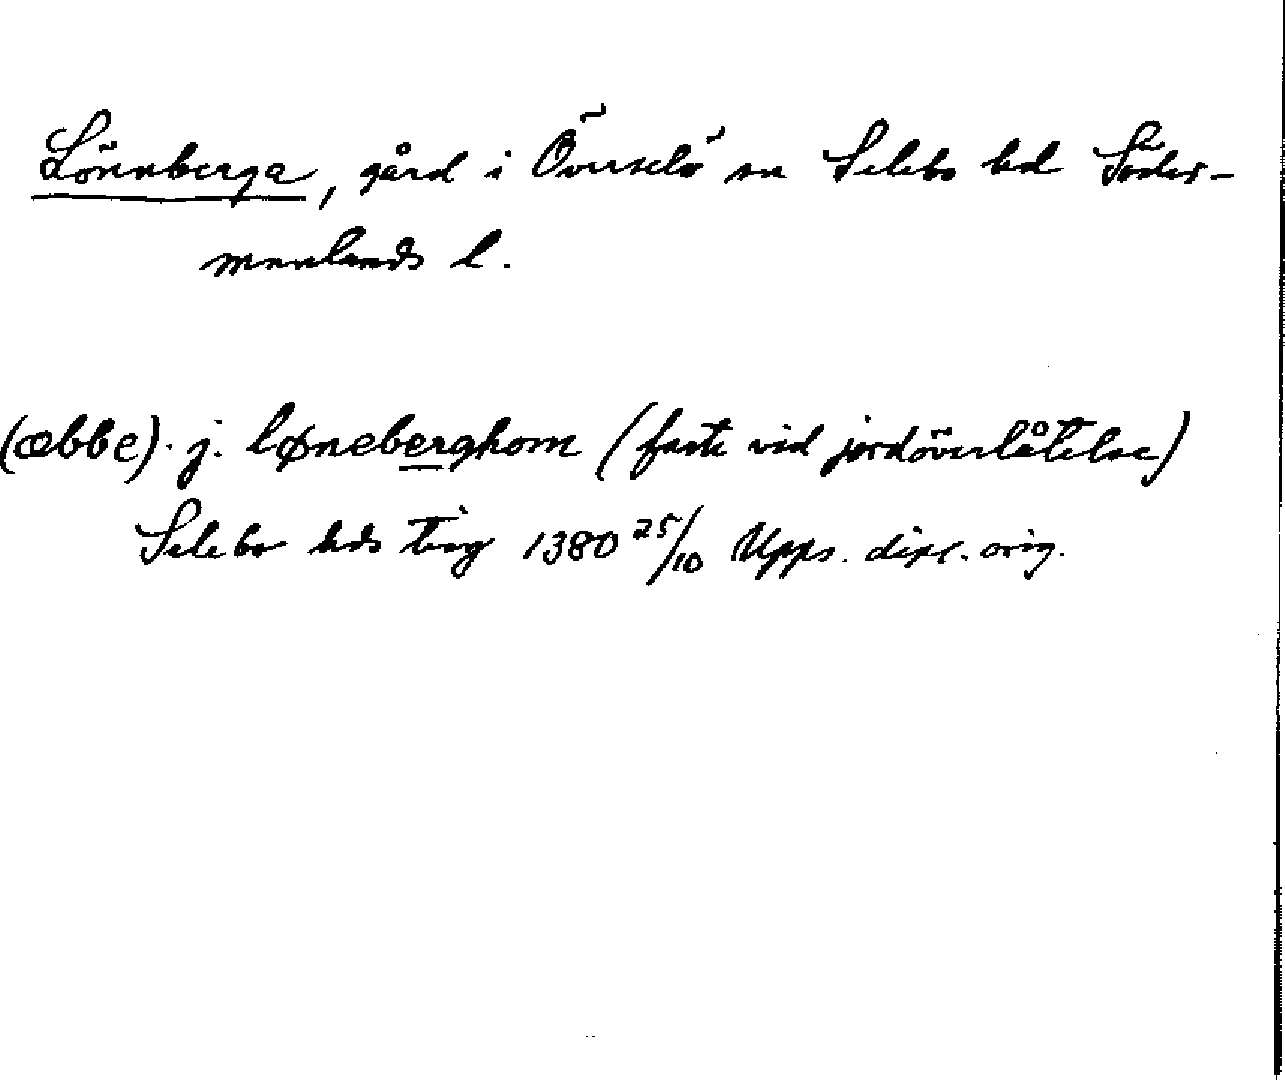 Lönnberga, gård i Överselö sn Selebo hd Söder-
manlands l.
(æbbe). j. løneberghom (faste vid jordöverlåtelse)
Selebo hds ting 1380 25/10 Upps. dipl. orig.